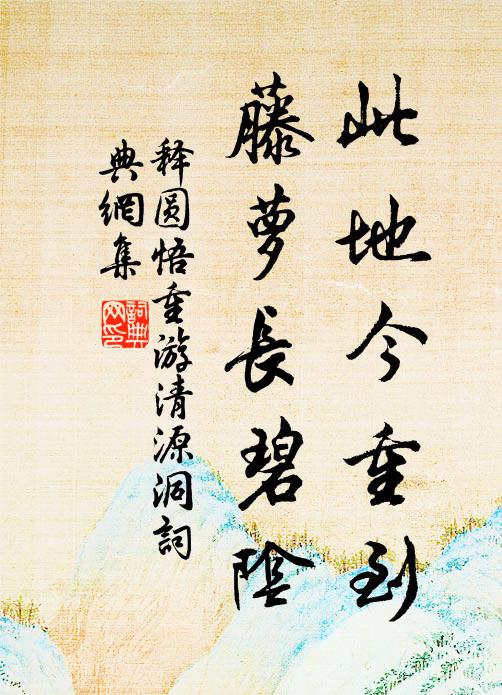 此地今重到
藤萝長碧陰
释圆悟重游清源洞詞
典網集
詞典
网印